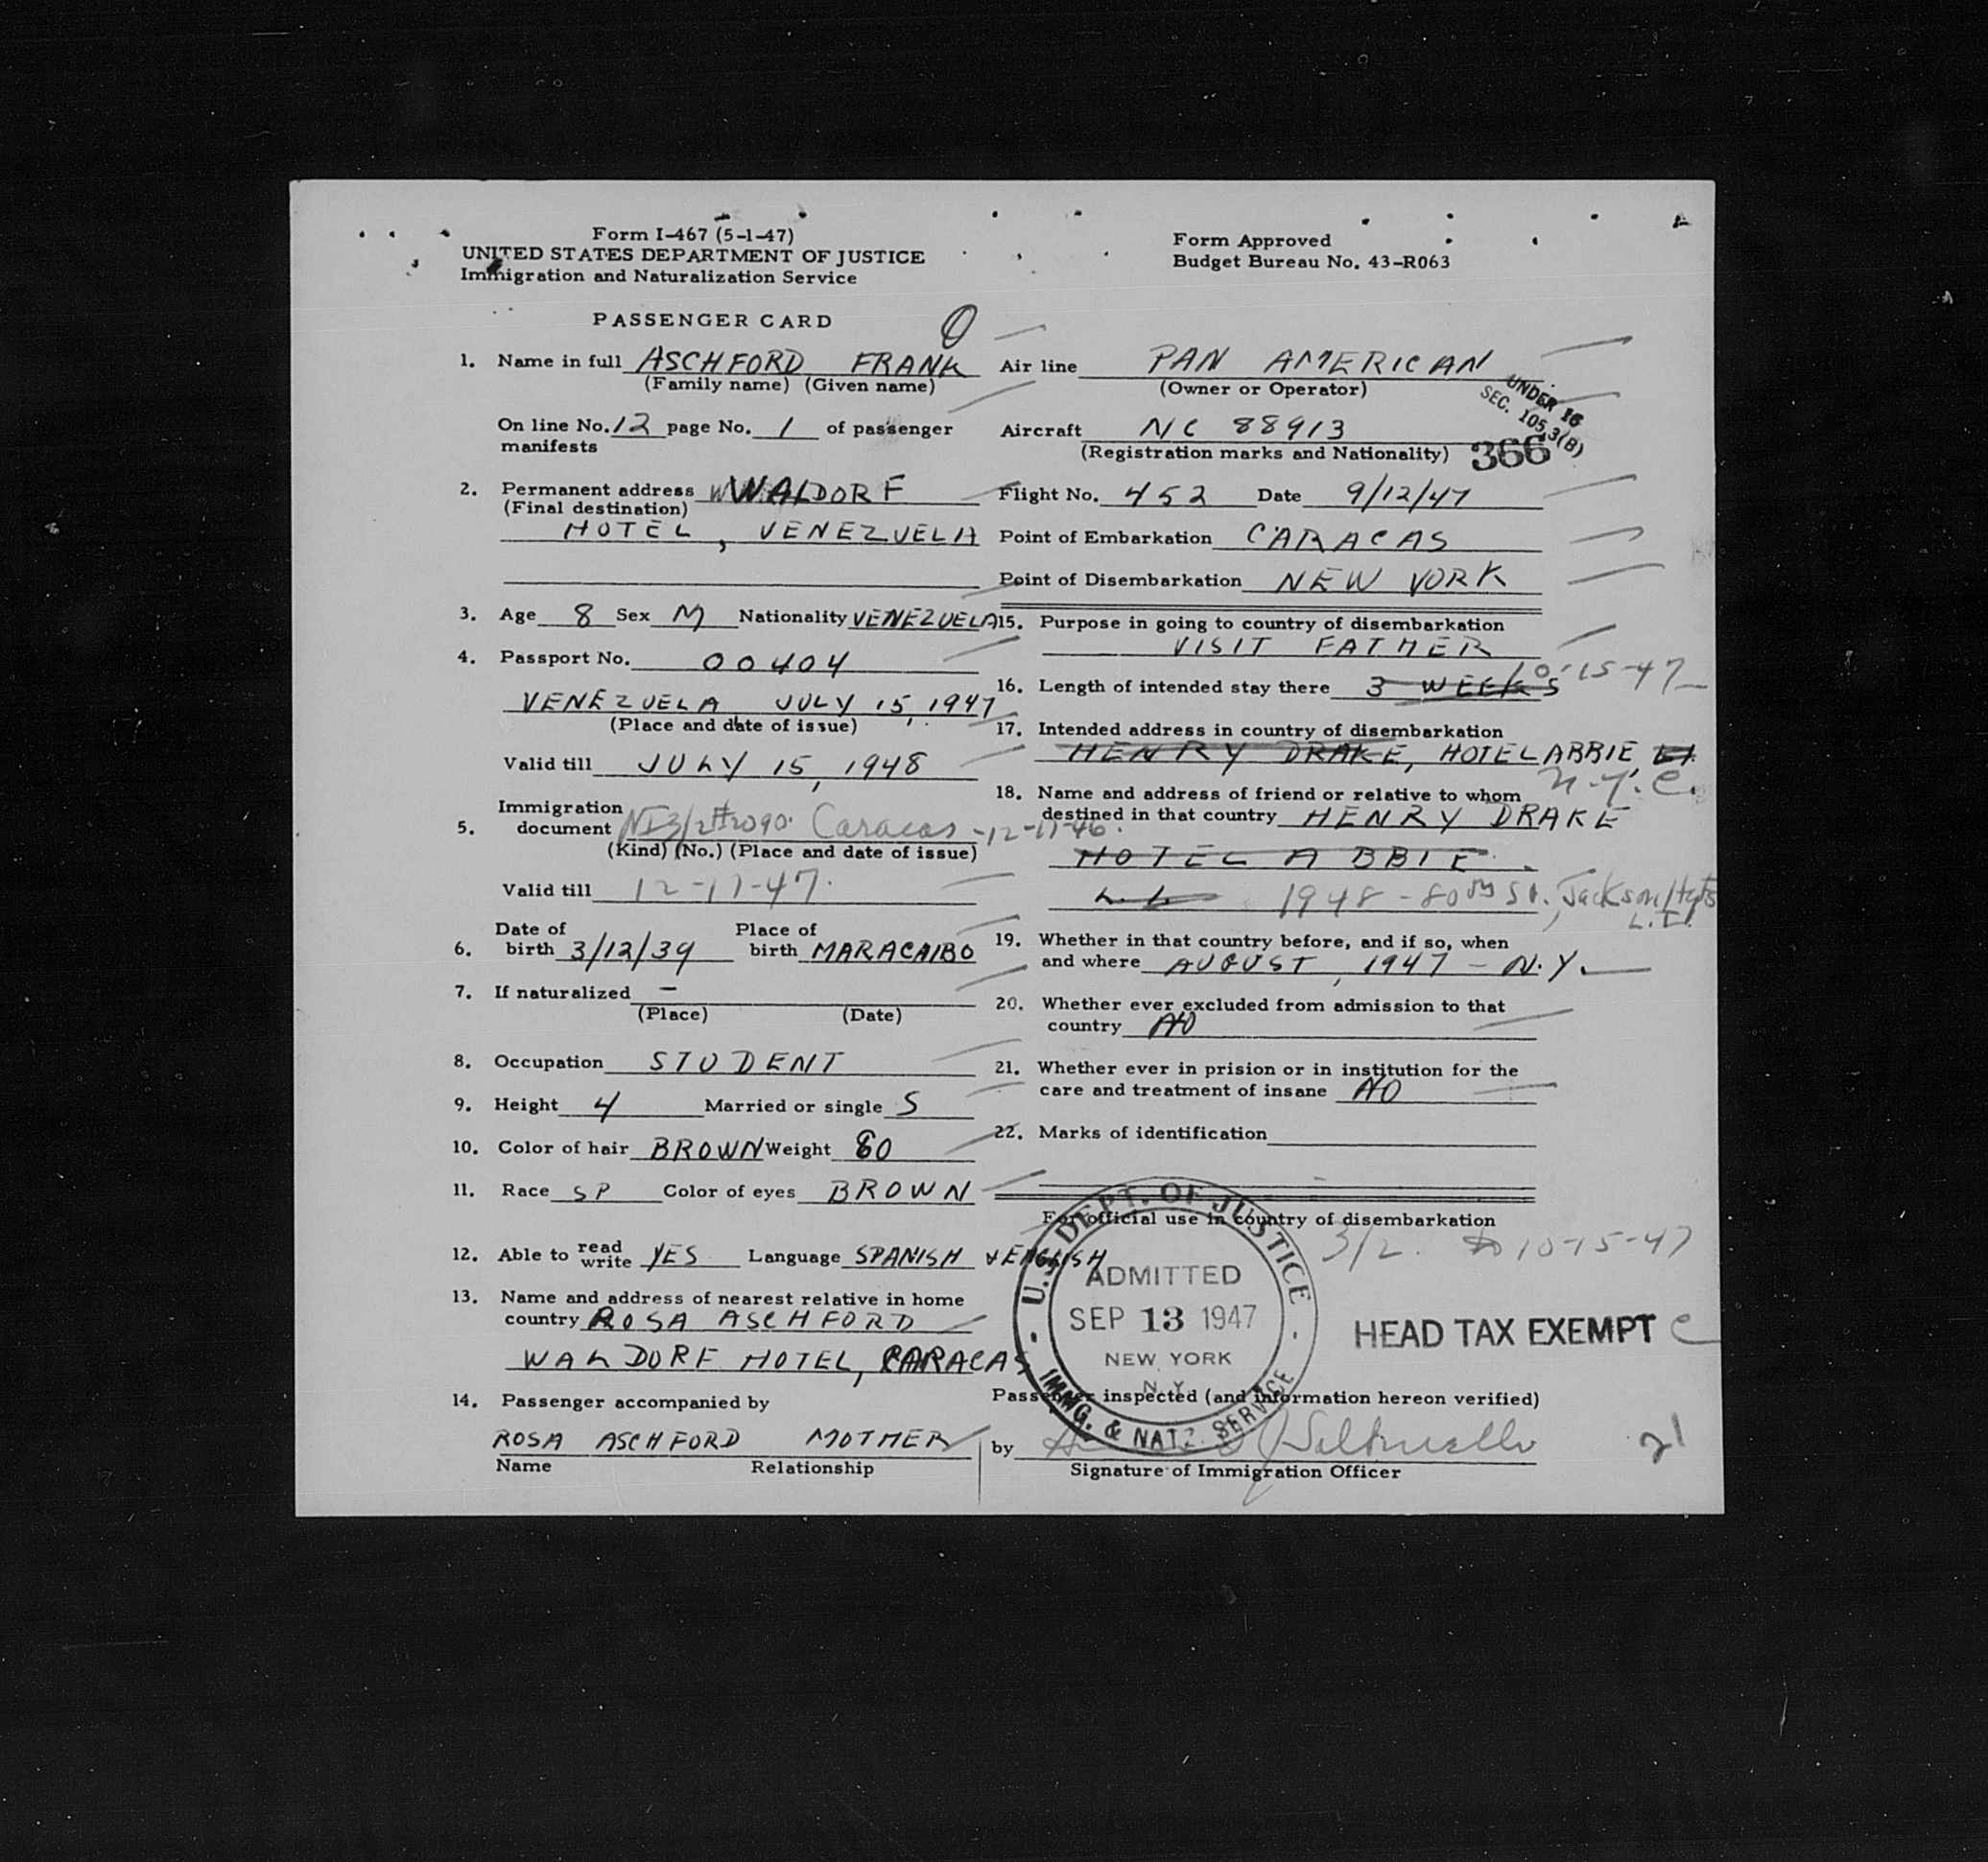 Form I-467 (5-1-47)
UNITED STATES DEPARTMENT OF JUSTICE
Immigration and Naturalization Service
Form Approved
Budget Bureau No. 43-R063
PASSENGER CARD
1. Name in full ASCHFORD FRANK
(Family name) (Given name)
On line No. 12 page No. 1 of passenger
manifests
2. Permanent address WALDORF
(Final destination)
HOTEL, VENEZUELA
3. Age 8 Sex M Nationality VENEZUELA
4. Passport No. 00404
VENEZUELA JULY 15, 1947
(Place and date of issue)
Valid till JULY 15, 1948
Immigration
5. document Caracas - 12-17-46.
(Kind) (No.) (Place and date of issue)
Valid till 12-17-47.
Date of Place of
6. birth 3/12/39 birth MARACAIBO
7. If naturalized —
(Place) (Date)
8. Occupation STUDENT
9. Height 4 Married or single S
10. Color of hair BROWN Weight 60
11. Race SP Color of eyes BROWN
12. Able to read write YES Language SPANISH & ENGLISH
13. Name and address of nearest relative in home
country ROSA ASCHFORD
WALDORF HOTEL, CARACAS
14. Passenger accompanied by
ROSA ASCHFORD MOTHER
Name Relationship
Air line PAN AMERICAN
(Owner or Operator)
UNDER 16
SEC. 105.3(B)
Aircraft NC 88913
(Registration marks and Nationality)
366
Flight No. 452 Date 9/12/47
Point of Embarkation CARACAS
Point of Disembarkation NEW YORK
15. Purpose in going to country of disembarkation
VISIT FATHER
16. Length of intended stay there 3 WEEKS 10-15-47
17. Intended address in country of disembarkation
HENRY DRAKE, HOTEL ABBIE, LI
N.Y.C.
18. Name and address of friend or relative to whom
destined in that country HENRY DRAKE
HOTEL ABBIE
L.I. 1948 - 80th St., Jackson Hgts
L.I.
19. Whether in that country before, and if so, when
and where AUGUST, 1947 - N.Y.
20. Whether ever excluded from admission to that
country NO
21. Whether ever in prision or in institution for the
care and treatment of insane NO
22. Marks of identification
For official use in country of disembarkation
3/2. 10-15-47
U.S. DEPT. OF JUSTICE
ADMITTED
SEP 13 1947
NEW YORK
N.Y.
IMMG. & NATZ. SERVICE
HEAD TAX EXEMPT
Passenger inspected (and information hereon verified)
by
Signature of Immigration Officer
21